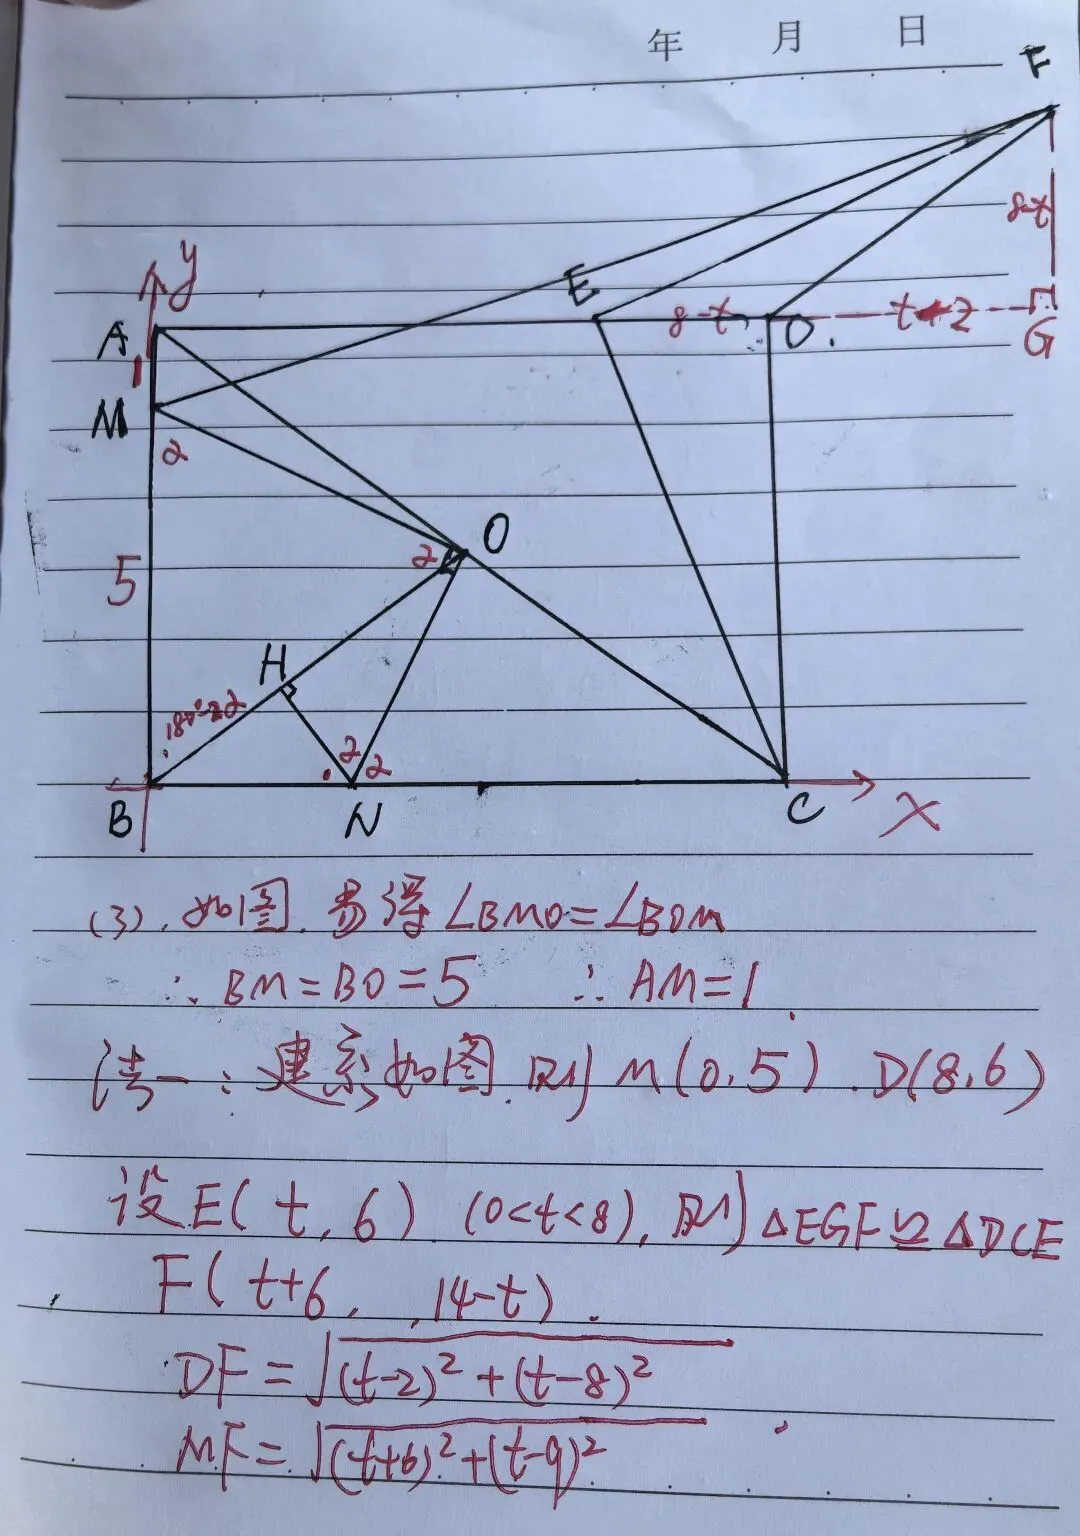 年 月 日
F
8-t
y
E
A
8-t
D
t-2
G
1
M
2
O
5
2
H
180°-22
2
2
B
N
C
X
(3). 如图. 易得∠BMO=∠BOM
∴ BM=BO=5 ∴ AM=1
法一: 建系如图. 则 M(0.5). D(8.6)
设E(t,6) (0<t<8), 则△EGF≌△DCE
F(t+6, 14-t).
DF=√(t-2)²+(t-8)²
MF=√(t+6)²+(t-9)²